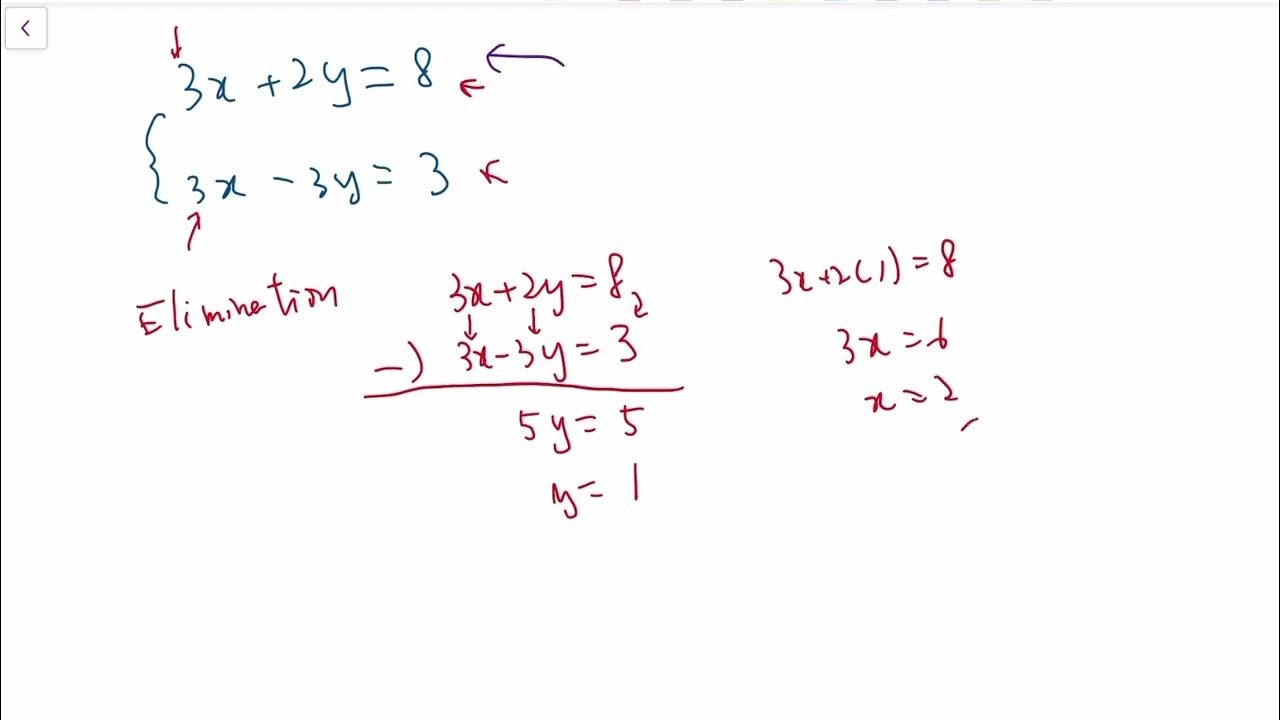 3x + 2y = 8
3x - 3y = 3
Elimination
3x + 2y = 8
-) 3x - 3y = 3
5y = 5
y = 1
3x + 2(1) = 8
3x = 6
x = 2